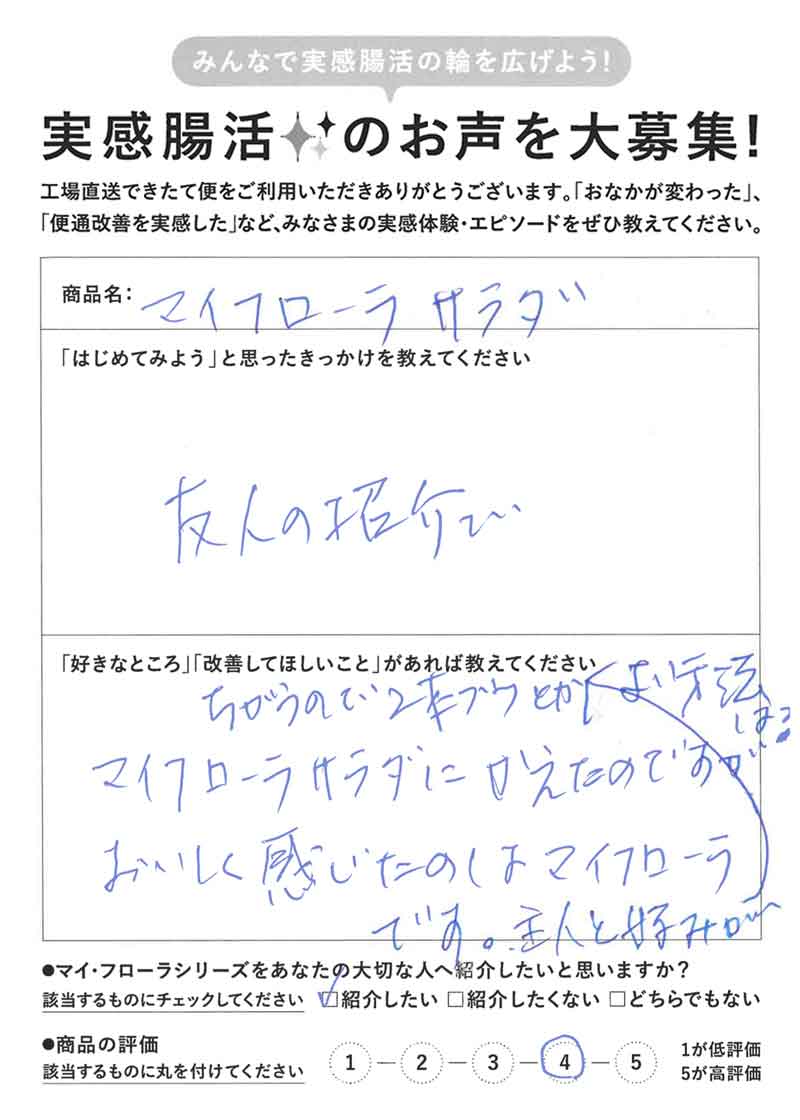 みんなで実感腸活の輪を広げよう!
実感腸活のお声を大募集!
工場直送できたて便をご利用いただきありがとうございます。「おなかが変わった」、
「便通改善を実感した」など、みなさまの実感体験・エピソードをぜひ教えてください。
商品名: マイフローラ サラダ
「はじめてみよう」と思ったきっかけを教えてください
友人の紹介で
「好きなところ」「改善してほしいこと」があれば教えてください
マイフローラサラダに かえたのですが
おいしく感じたのはマイフローラ
です。主人と好みが
ちがうので、2本づつとか よい方法
は?
●マイ・フローラシリーズをあなたの大切な人へ紹介したいと思いますか?
該当するものにチェックしてください ☑紹介したい □紹介したくない □どちらでもない
●商品の評価
該当するものに丸を付けてください
1 — 2 — 3 — 4 — 5
1が低評価
5が高評価